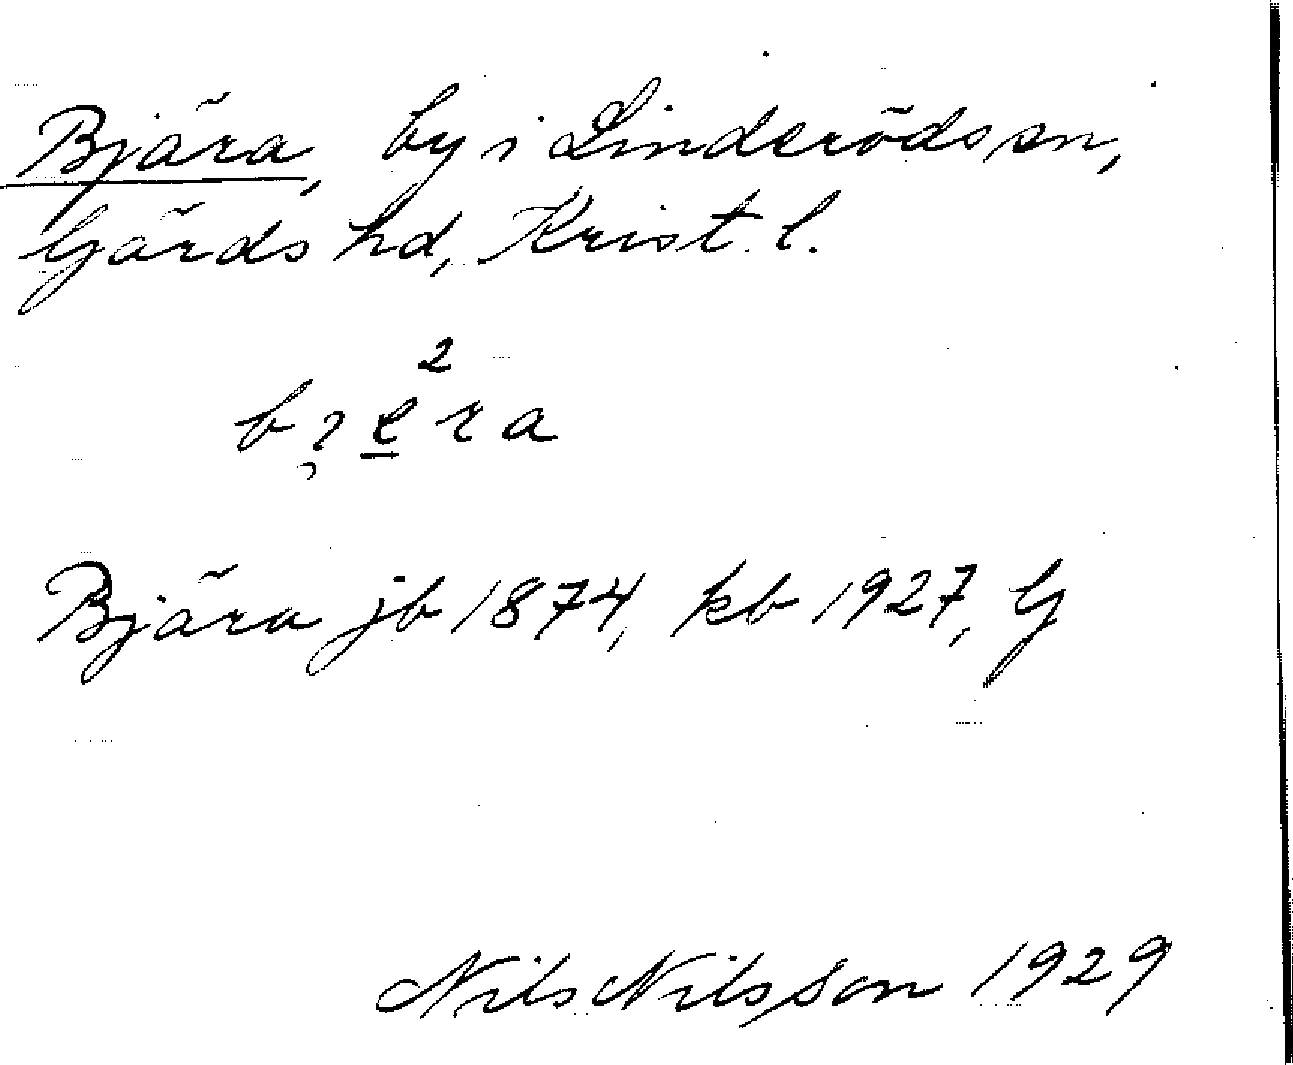 Bjära, by i Linderöds sn,
Gärds hd, Krist. l.
2
Bjära jb 1874, kb 1927, G
Nils Nilsson 1929